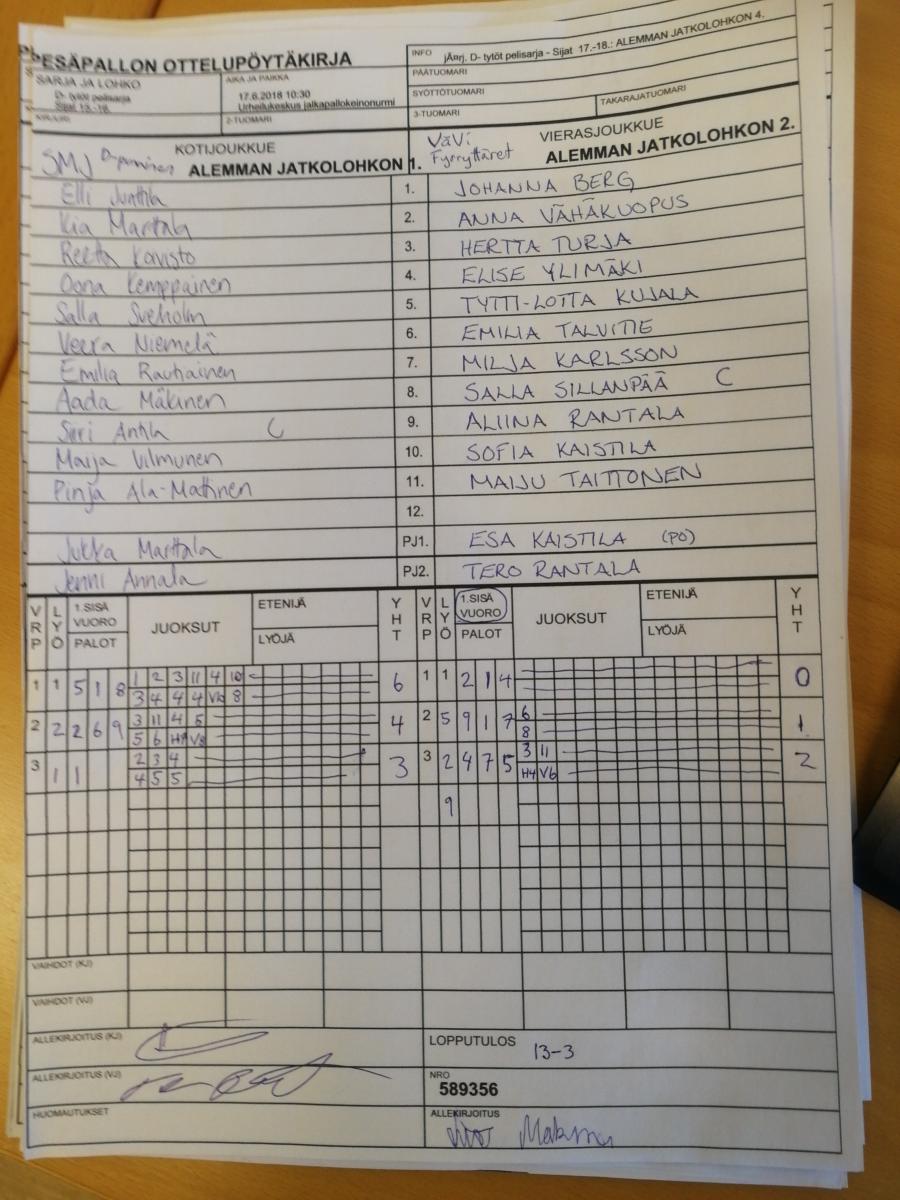 PESÄPALLON OTTELUPÖYTÄKIRJA
SARJA JA LOHKO
D- tytöt pelisarja
Sijat 13.-16.
AIKA JA PAIKKA
17.6.2018 10:30
Urheilukeskus jalkapallokeinonurmi
2-TUOMARI
INFO
jÄerj. D- tytöt pelisarja - Sijat 17.-18.: ALEMMAN JATKOLOHKON 4.
PÄÄTUOMARI
SYÖTTÖTUOMARI
3-TUOMARI
TAKARAJATUOMARI
KOTIJOUKKUE
SMJ D-punainen ALEMMAN JATKOLOHKON 1.
VäVi VIERASJOUKKUE
Fyrryttäret ALEMMAN JATKOLOHKON 2.
Elli Junttila 1. JOHANNA BERG
Kia Marttala 2. ANNA VÄHÄKUOPUS
Reetta Koivisto 3. HERTTA TURJA
Oona Kemppainen 4. ELISE YLIMÄKI
Salla Sveholm 5. TYTTI-LOTTA KUJALA
Veera Niemelä 6. EMILIA TALVITIE
Emilia Rautiainen 7. MILJA KARLSSON
Aada Mäkinen 8. SALLA SILLANPÄÄ C
Siiri Anttila C 9. ALIINA RANTALA
Maija Vilmunen 10. SOFIA KAISTILA
Pinja Ala-Mattinen 11. MAIJU TAITTONEN
12.
Jukka Marttala PJ1. ESA KAISTILA (PÖ)
Jenni Annala PJ2. TERO RANTALA
VRP LYÖ 1.SISÄ VUORO PALOT JUOKSUT ETENIJÄ LYÖJÄ YHT VRP LYÖ 1.SISÄ VUORO PALOT JUOKSUT ETENIJÄ LYÖJÄ YHT
1 1 5 1 8 1 2 3 11 4 10 6 1 1 2 1 4 0
3 4 4 4 V6 8
2 2 2 6 9 3 11 4 5 4 2 5 9 1 7 6 1
5 6 H4 V8 8
3 1 1 2 3 4 3 3 2 4 7 5 3 11 2
4 5 5 H4 V6
9
VAIHDOT (KJ)
VAIHDOT (VJ)
ALLEKIRJOITUS (KJ)
LOPPUTULOS 13-3
ALLEKIRJOITUS (VJ)
NRO
589356
HUOMAUTUKSET
ALLEKIRJOITUS